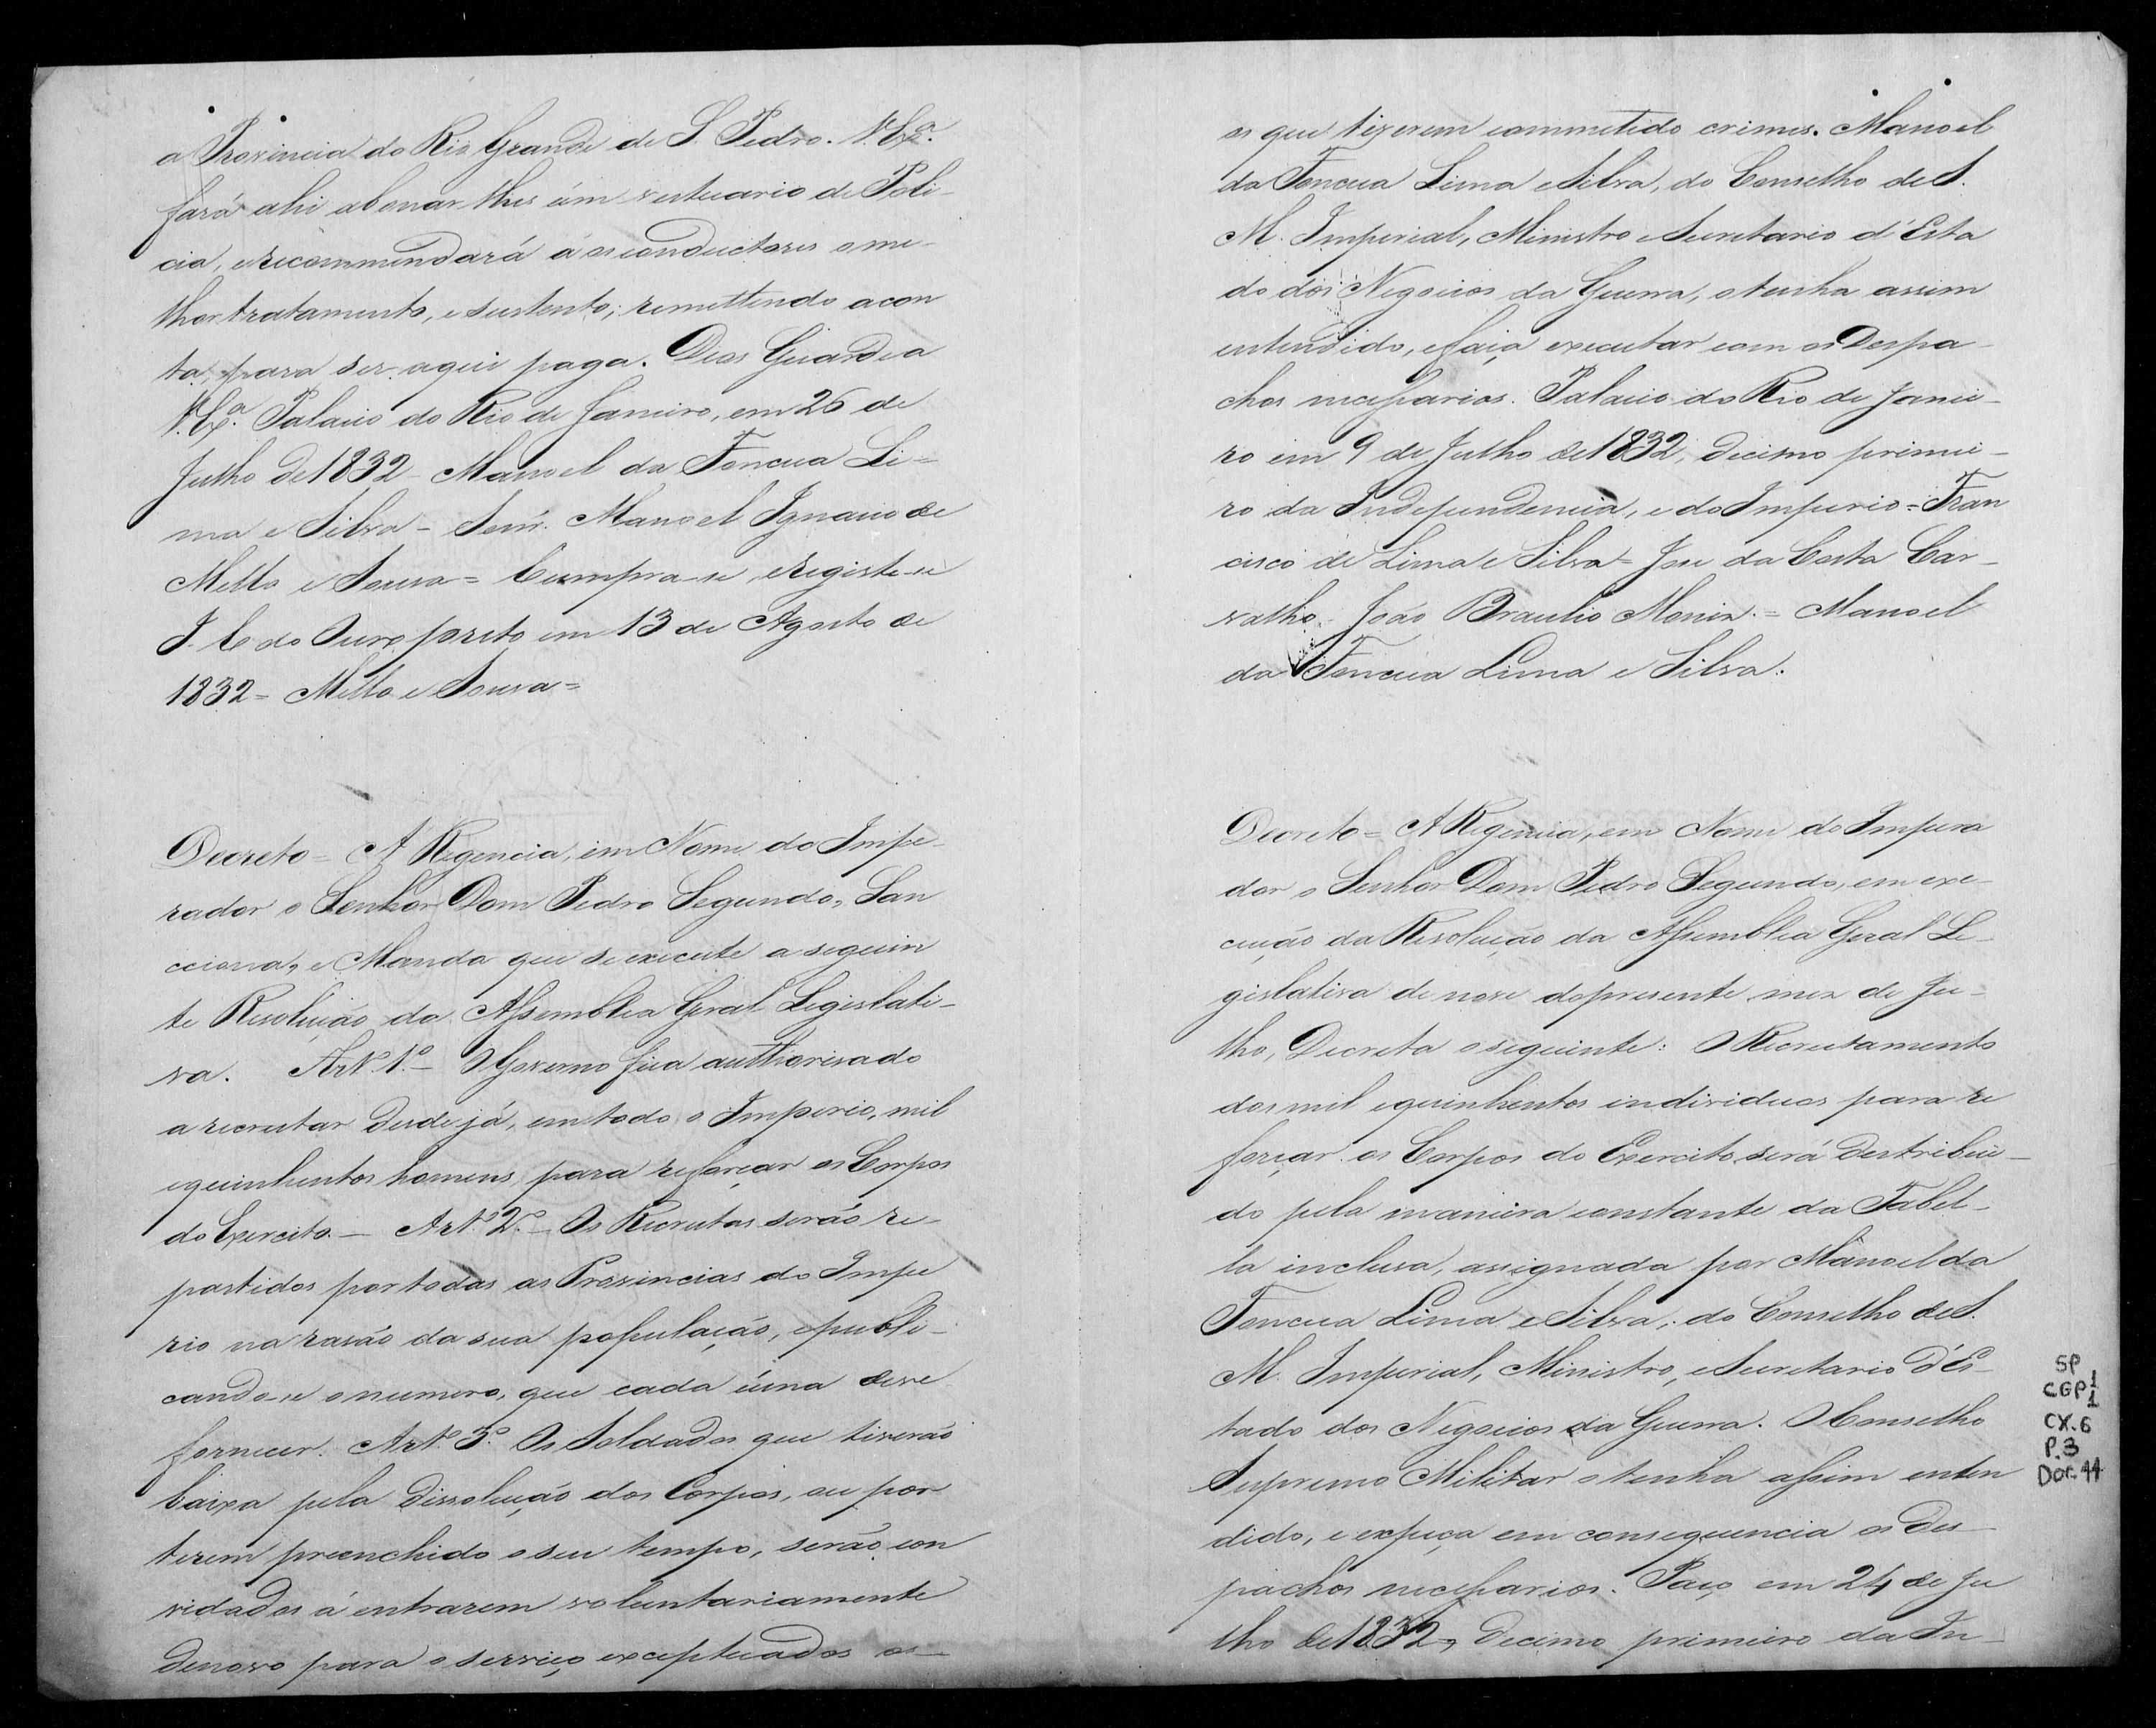 a Provincia do Rio Grande de S. Pedro. V. Exª.
fará ahi abonar-lhes úm vestuario de Poli-
cia, e recommendará á os conductores o me-
lhor tratamento, e sustento; remettendo a con
ta, para ser aqui paga. Dios Guarde a
V. Exª. Palacio do Rio de Janeiro, em 26 de
Julho de 1832 - Manoel da Fonceca Li-
ma e Silva - Senr. Manoel Ignacio de
Mello e Sousa = Cumpra-se, e registe-se
I. C. do Ouro preto em 13 de Agosto de
1832 = Mello e Sousa =
Decreto = A Regencia, em Nome do Impe-
rador o Senhor Dom Pedro Segundo, San
cciona, e Manda que se execute a seguin
te Resolução da Assemblea Geral Legislati-
va. Artº. 1º. - O Governo fica authorisado
a recrutar desde já, em todo o Imperio, mil
e quinhentos homens para reforçar os Corpos
do Exercito. - Artº. 2º. - Os Recrutas serão re-
partidos por todas as Provincias do Impe
rio na rasão da sua população, e publi-
cando-se o numero, que cada úma deve
fornecer. Artº. 3º. Os Soldados que tiverão
baixa pela dissolução dos Corpos, ou por
terem preenchido o seu tempo, serão con
vidados á entrarem voluntariamente
denovo para o serviço exceptuados os
os que tiverem commetido crimes. Manoel
da Fonceca Lima e Silva, do Conselho de S.
M. Imperial, Ministro e Secretario d'Esta
do dos Negocios da Guerra, o tenha assim
entendido, e faça executar com os Despa-
chos necessarios. Palacio do Rio de Janei-
ro em 9 de Julho de 1832, decimo primei-
ro da Independencia, e do Imperio = Fran
cisco de Lima e Silva = Jose da Costa Car-
valho. João Braulio Moniz. = Manoel
da Fonceca Lima e Silva.
Decreto = A Regencia, em Nome do Impera
dor o Senhor Dom Pedro Segundo, em exe-
cução da Resolução da Assemblea Geral Le-
gislativa de nove do presente mez de Ju-
lho, Decreta o seguinte: O Recrutamento
dos mil e quinhentos individuos para re
forçar os Corpos do Exercito será destribui-
do pela maneira constante da Tabel-
la inclusa, assignada por Manoel da
Fonceca Lima e Silva, do Conselho de S.
M. Imperial, Ministro, e Secretario d'Es-
tado dos Negocios da Guerra. O Conselho
Supremo Militar o tenha assim enten
dido, e expeça em consequencia os des-
pachos necessarios. Paço em 24 de Ju
lho de 1832, decimo primeiro da In-
SP
CGP 1
1
CX. 6
P. 3
Doc. 44